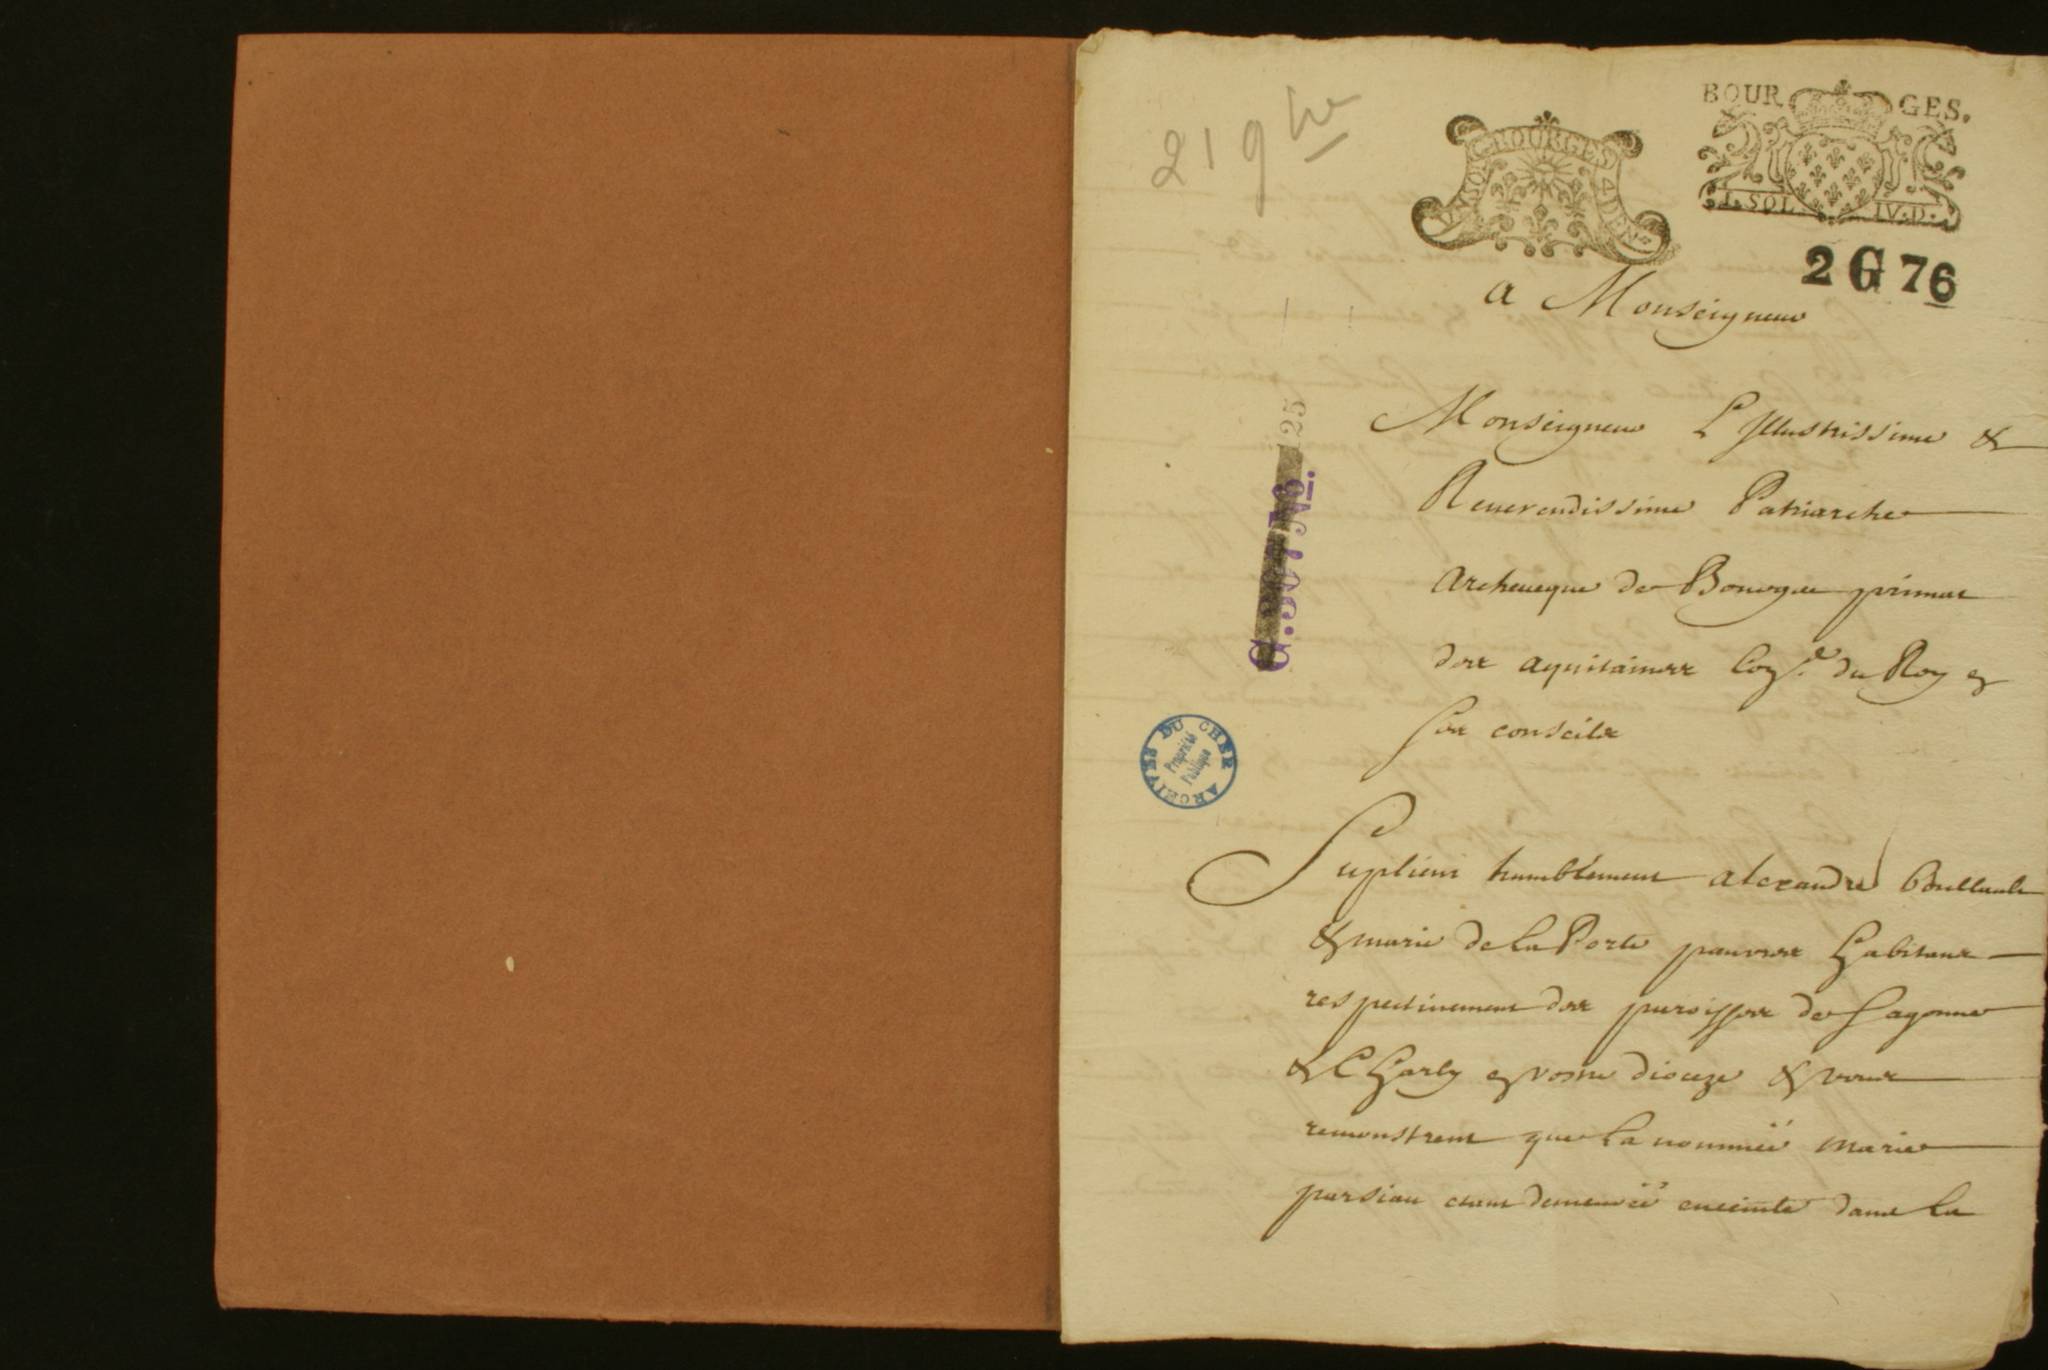 21 9bre
UN SOL BOURGES 4 DEN.
BOURGES.
I. SOL. IV. D.
2 G 76
a Monseigneur
125
G. 307 N°.
Monseigneur L'Illustrissime &
Reuerendissime Patriarche
Archeueque de Bourges primat
des aquitaines Con.er du Roy en
ses conseils
ARCHIVES DU CHER
Propriété
Publique
Suplient humblement alexandre
& marie de la Porte pauvres habitans
respectiuement des paroisses de Sagonne
& Charly en vostre dioceze & vous
remonstrent que la nommée marie
parsiau etant demeurée enceinte dans la